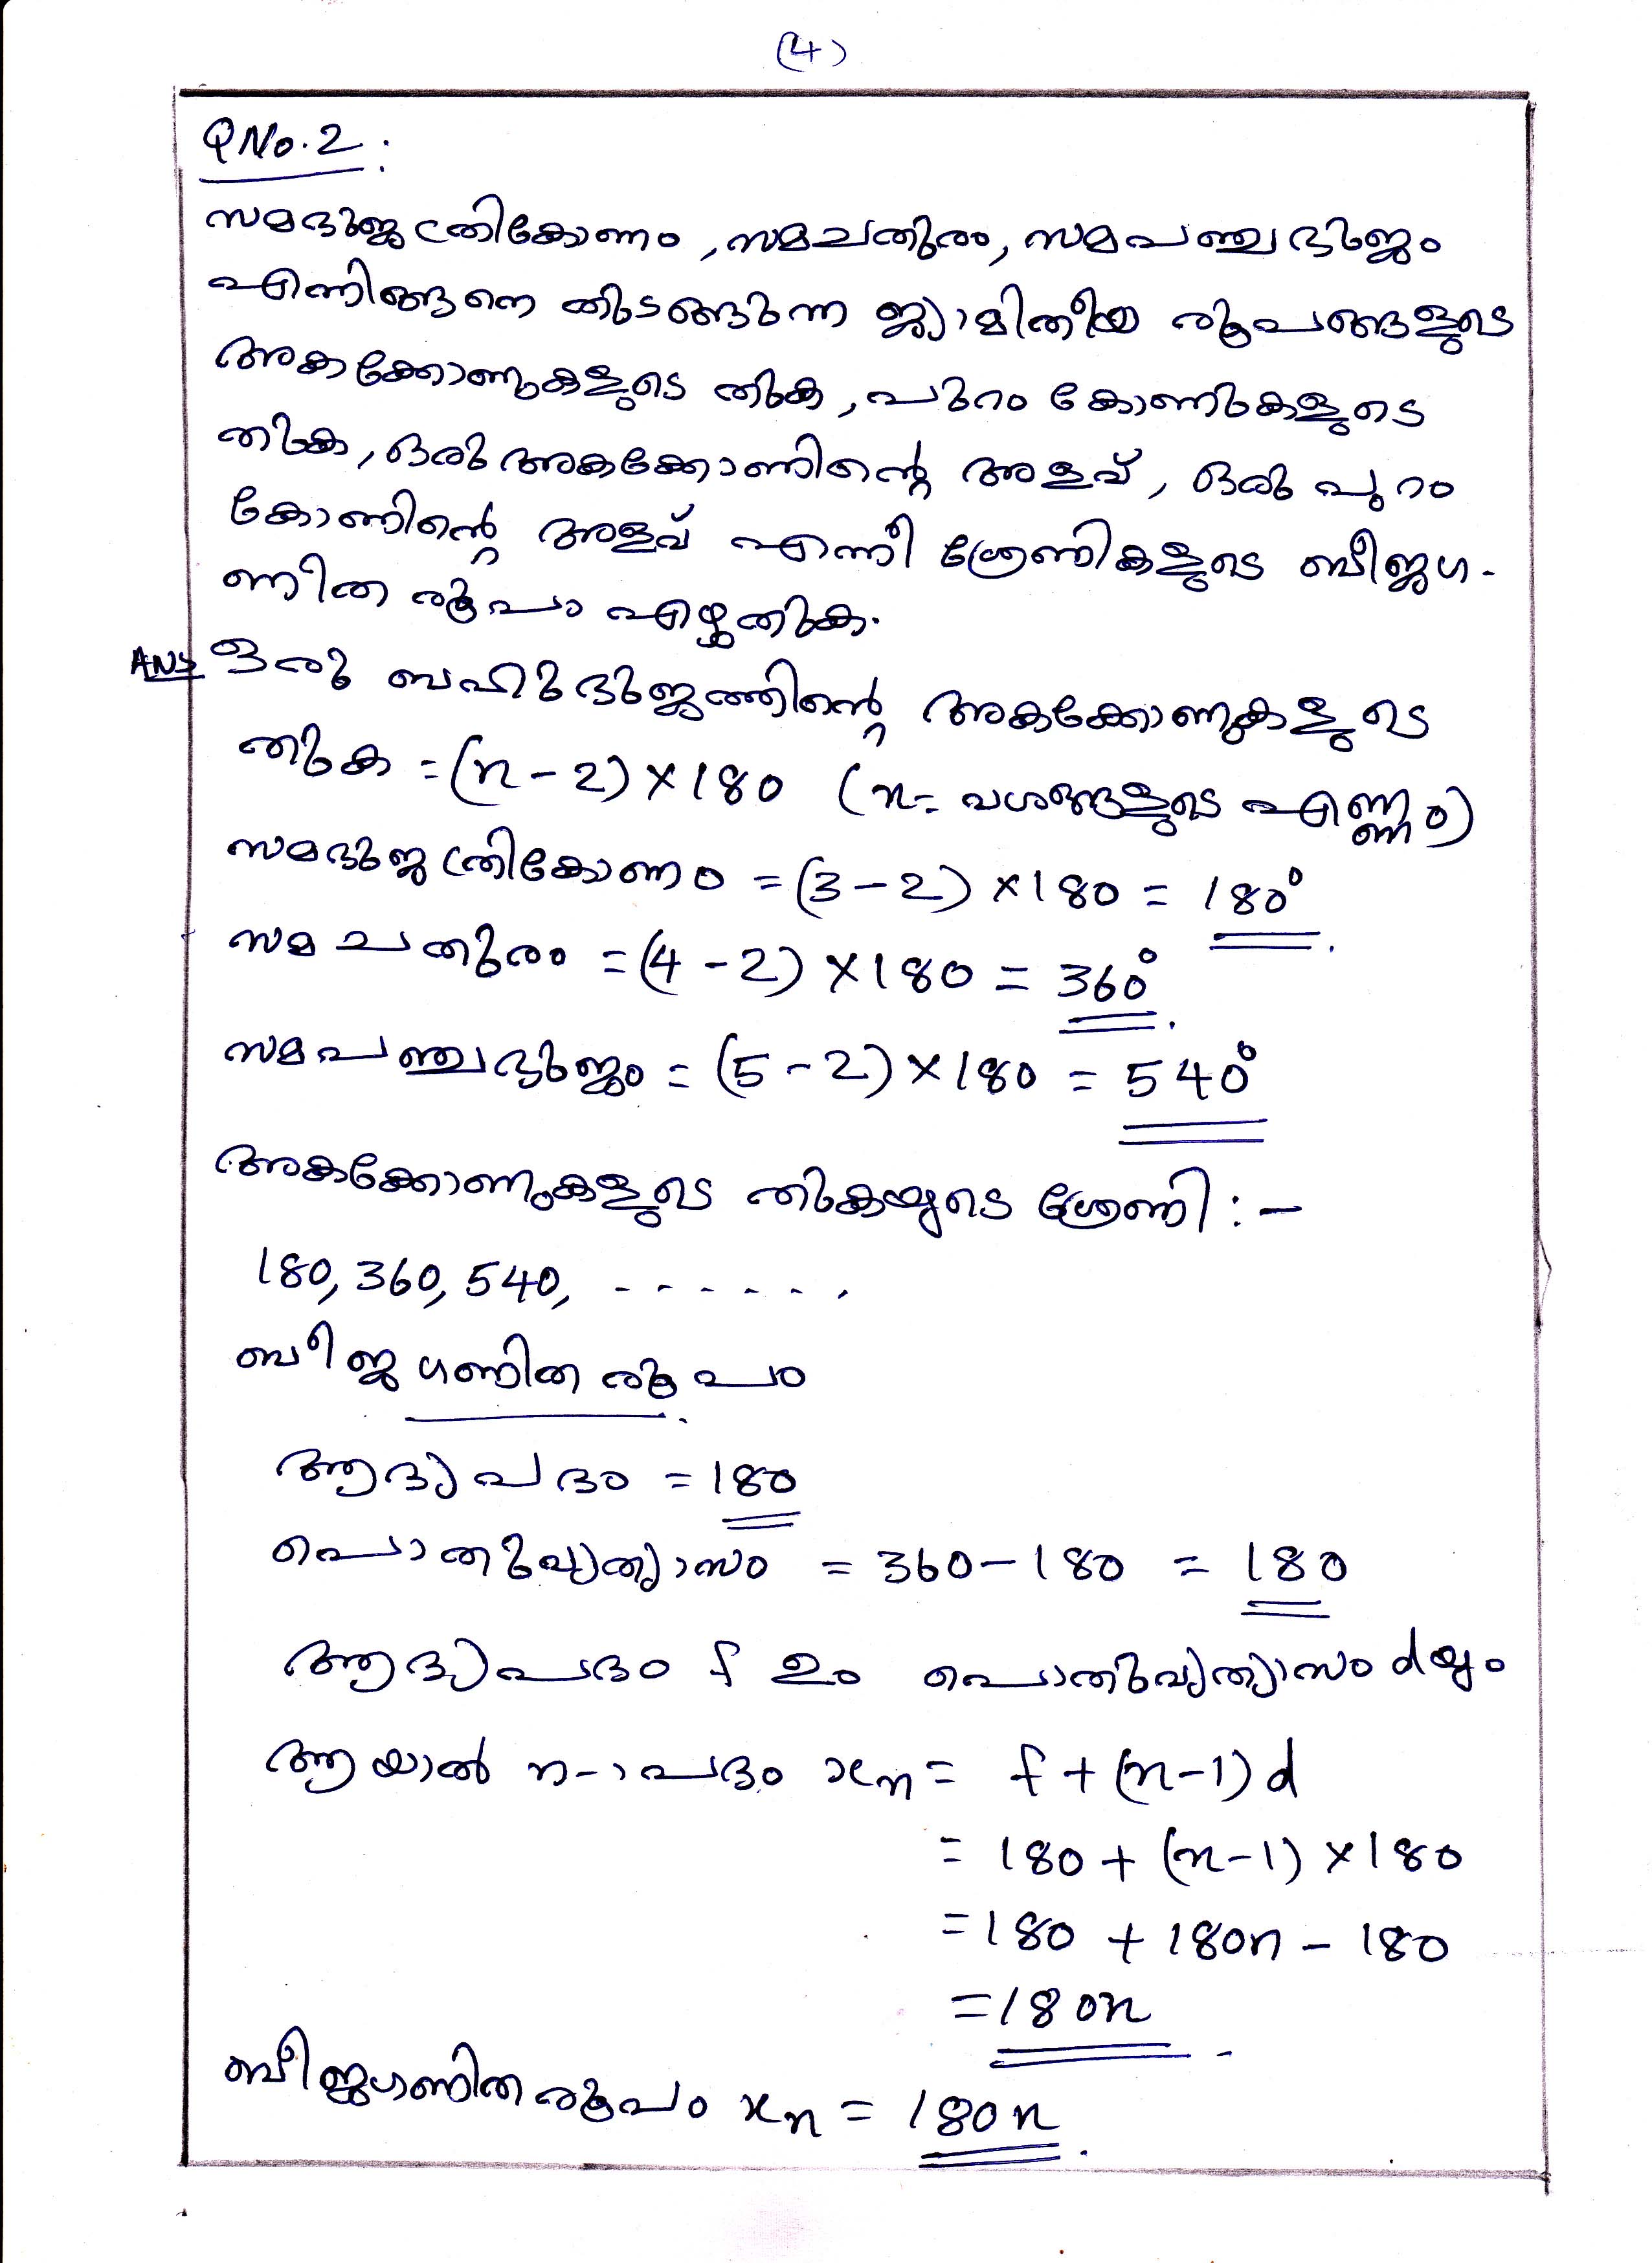 (4)
Q No. 2 :
സമഭുജത്രികോണം , സമചതുരം, സമപഞ്ചഭുജം
എന്നിങ്ങനെ തുടങ്ങുന്ന ജ്യാമിതീയ രൂപങ്ങളുടെ
അകക്കോണുകളുടെ തുക , പുറം കോണുകളുടെ
തുക , ഒരു അകക്കോണിന്റെ അളവ് , ഒരു പുറം
കോണിന്റെ അളവ് എന്നീ ശ്രേണികളുടെ ബീജഗ-
ണിത രൂപം എഴുതുക.
ANS ഒരു ബഹുഭുജത്തിന്റെ അകക്കോണുകളുടെ
തുക = (n-2) × 180 ( n= വശങ്ങളുടെ എണ്ണം )
സമഭുജ ത്രികോണം = (3-2) × 180 = 180°
സമ ചതുരം = (4-2) × 180 = 360°.
സമപഞ്ചഭുജം = (5-2) × 180 = 540°
അകക്കോണുകളുടെ തുകയുടെ ശ്രേണി :-
180, 360, 540, - - - - - - ,
ബീജഗണിത രൂപം
ആദ്യപദം = 180
പൊതുവ്യത്യാസം = 360-180 = 180
ആദ്യപദം f ഉം പൊതുവ്യത്യാസം d യും
ആയാൽ n-ാപദം xₙ = f + (n-1) d
= 180 + (n-1) × 180
= 180 + 180n - 180
= 180n
ബീജഗണിത രൂപം xₙ = 180n.